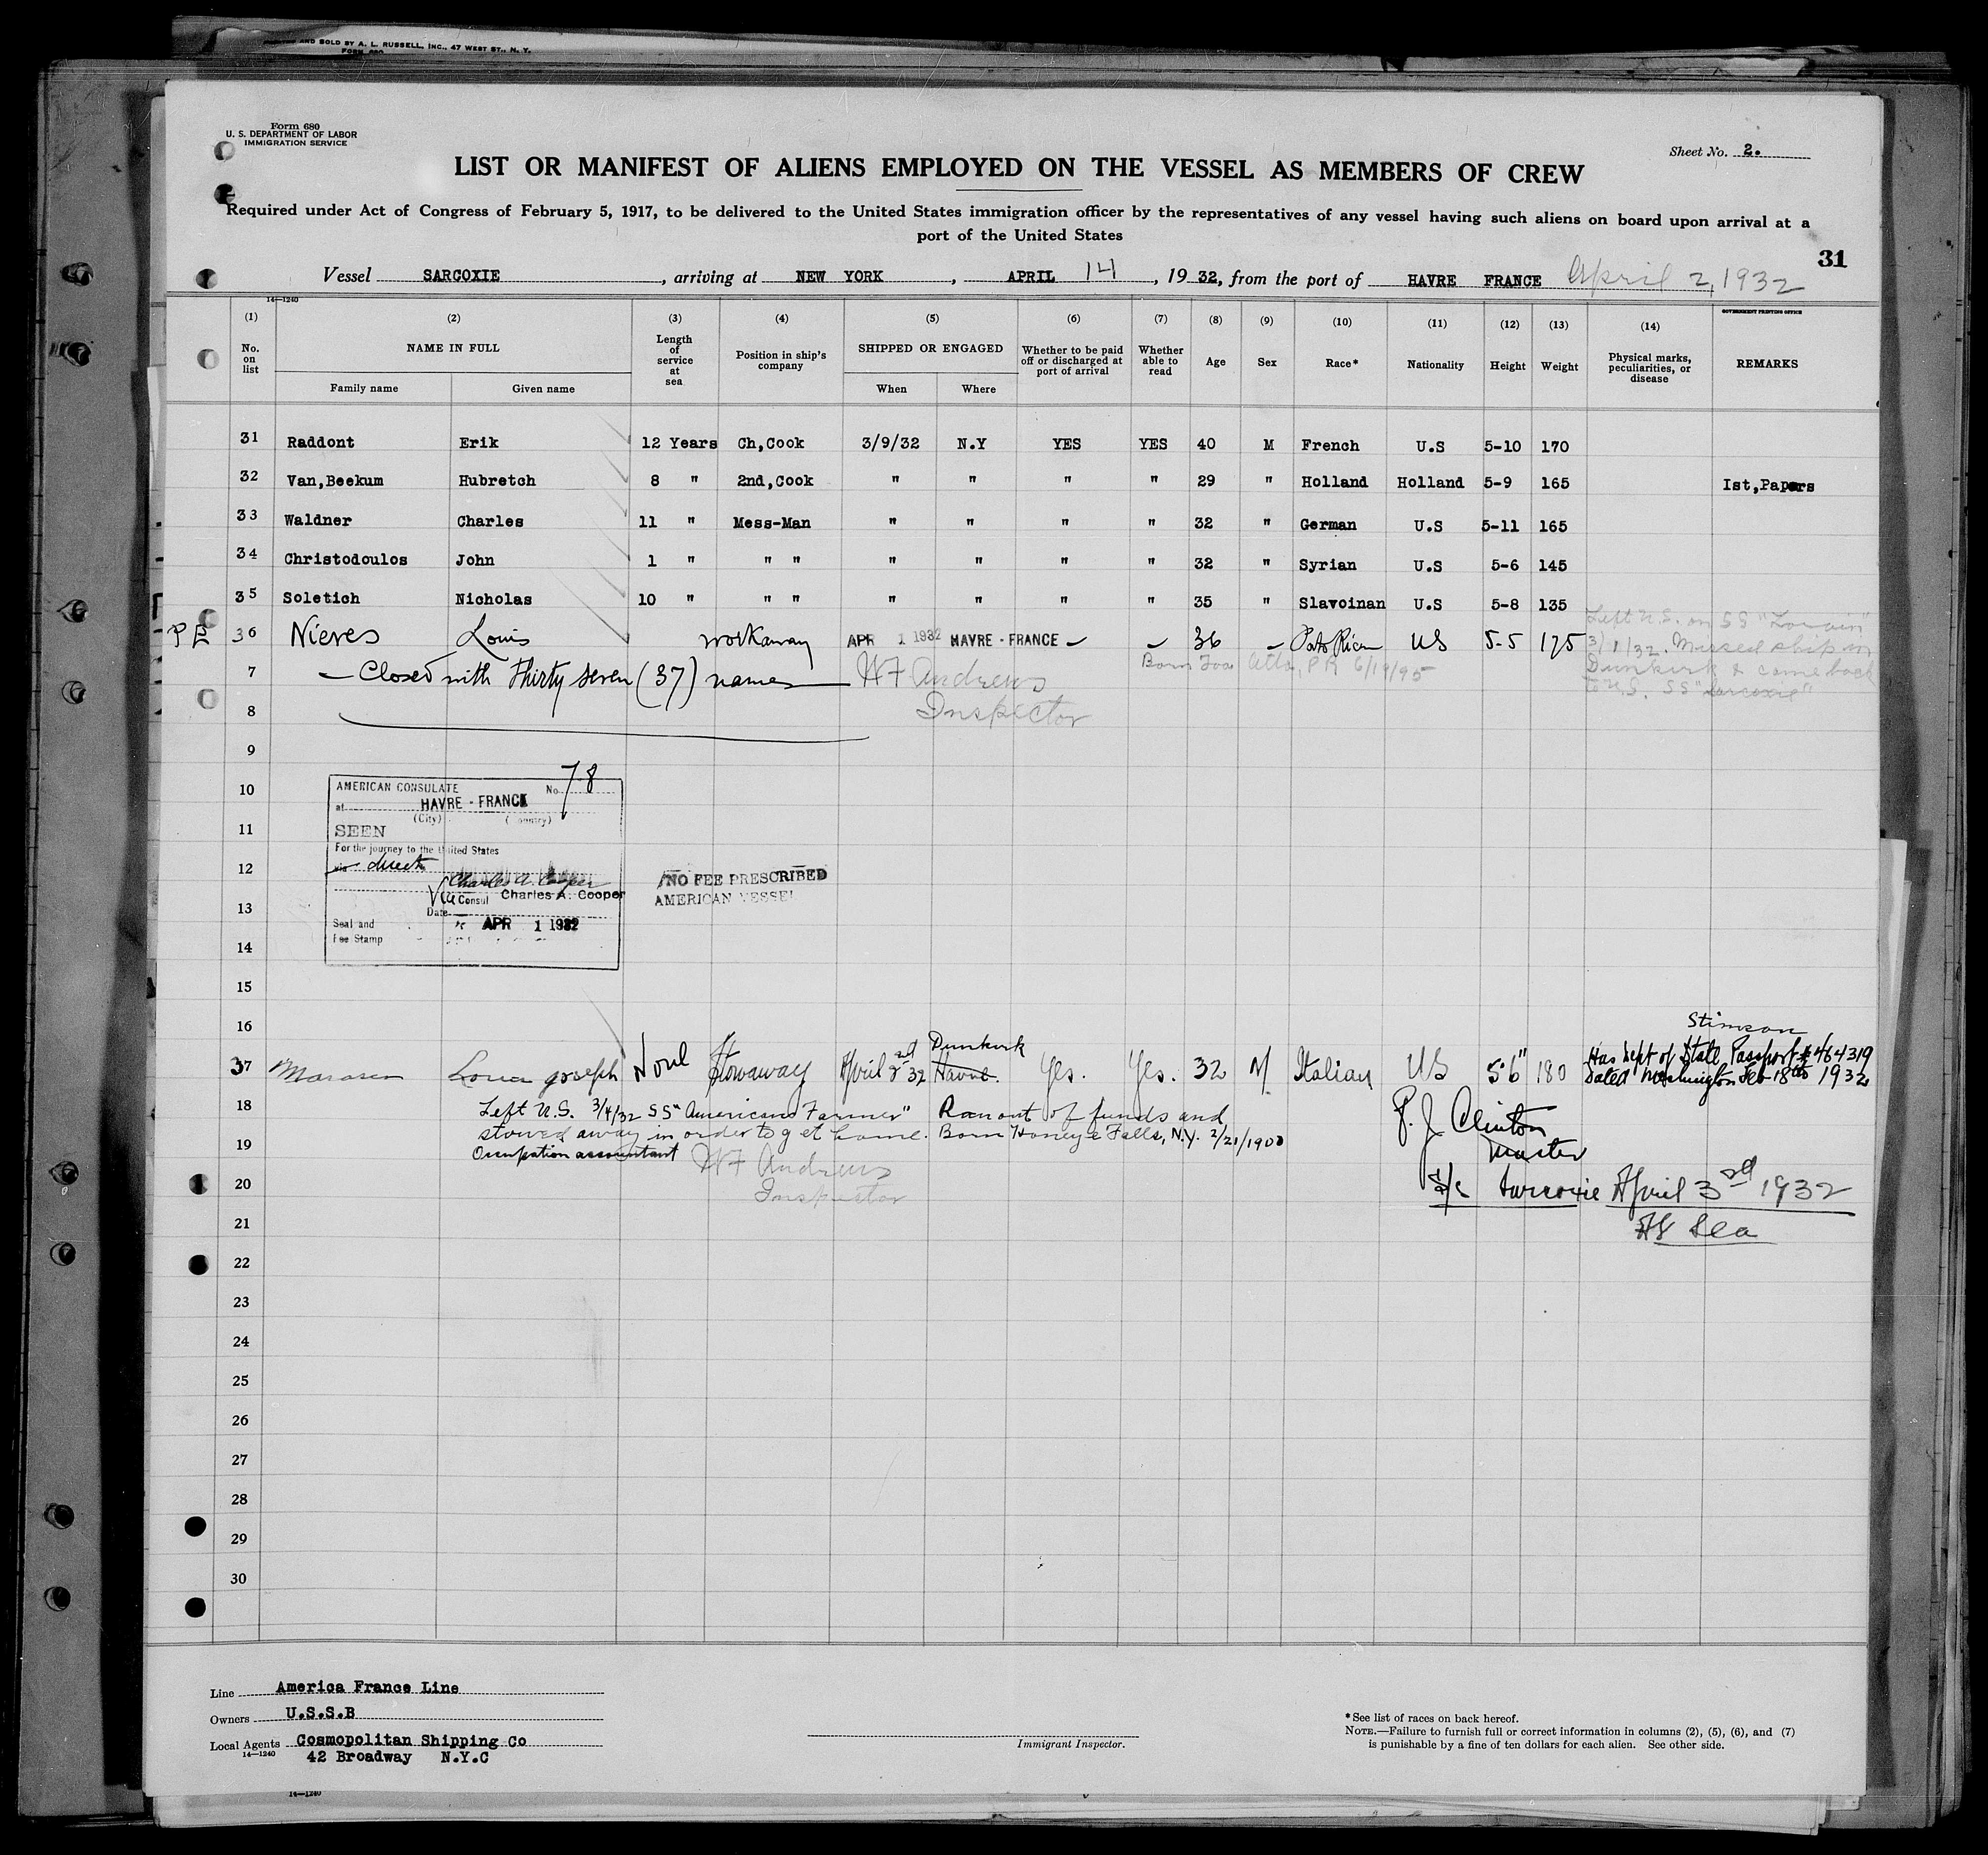 AND SOLD BY A. L. RUSSELL, INC., 47 WEST ST., N. Y.
FORM 680
Form 680
U. S. DEPARTMENT OF LABOR
IMMIGRATION SERVICE
Sheet No. 2.
LIST OR MANIFEST OF ALIENS EMPLOYED ON THE VESSEL AS MEMBERS OF CREW
Required under Act of Congress of February 5, 1917, to be delivered to the United States immigration officer by the representatives of any vessel having such aliens on board upon arrival at a
port of the United States
31
Vessel SARCOXIE, arriving at NEW YORK, APRIL 14, 1932, from the port of HAVRE FRANCE April 2, 1932
14—1240
GOVERNMENT PRINTING OFFICE
(1) (2) (3) (4) (5) (6) (7) (8) (9) (10) (11) (12) (13) (14)
No. on list NAME IN FULL Length of service at sea Position in ship's company SHIPPED OR ENGAGED Whether to be paid off or discharged at port of arrival Whether able to read Age Sex Race* Nationality Height Weight Physical marks, peculiarities, or disease REMARKS
Family name Given name When Where
31 Raddont Erik 12 Years Ch,Cook 3/9/32 N.Y YES YES 40 M French U.S 5-10 170
32 Van,Beekum Hubretch 8 " 2nd,Cook " " " " 29 " Holland Holland 5-9 165 Ist,Papers
33 Waldner Charles 11 " Mess-Man " " " " 32 " German U.S 5-11 165
34 Christodoulos John 1 " " " " " " " 32 " Syrian U.S 5-6 145
35 Soletich Nicholas 10 " " " " " " " 35 " Slavoinan U.S 5-8 135
PE 36 Nieves Louis workaway APR 1 1932 HAVRE - FRANCE 36 Porto Rican US 5-5 175
Left U.S. on SS "Lorain"
3/1/32. Missed ship in
Dunkirk & came back
to U.S. SS "Sarcoxie"
Born Toa Alta, P R 6/19/95
7 — Closed with Thirty seven (37) names — W F Andrews
8 Inspector
9
10
11
12
13
14
15
16
AMERICAN CONSULATE No. 78
at HAVRE - FRANCE
(City) (Country)
SEEN
For the journey to the United States
via direct
Charles A. Cooper
Vice Consul Charles A. Cooper
Date APR 1 1932
Seal and
Fee Stamp
NO FEE PRESCRIBED
AMERICAN VESSEL
Stimson
37 Louis Joseph None Stowaway April 2nd 32 Dunkirk Havre. Yes. Yes. 32 M Italian US 5'6" 180 Has Dept of State Passport # 464319
Dated Washington Feb 18th 1932
18 Left U.S. 3/4/32 SS "American Farmer" Ran out of funds and
19 stowed away in order to get home. Born Honeye Falls, N.Y. 2/21/1900
Occupation accountant W F Andrews
20 Inspector
P. J. Clinton
Master
S/S Sarcoxie April 3rd 1932
At Sea
21
22
23
24
25
26
27
28
29
30
Line America France Line
Owners U.S.S.B
Local Agents Cosmopolitan Shipping Co
14—1240 42 Broadway N.Y.C
Immigrant Inspector.
*See list of races on back hereof.
NOTE.—Failure to furnish full or correct information in columns (2), (5), (6), and (7)
is punishable by a fine of ten dollars for each alien. See other side.
14—1240